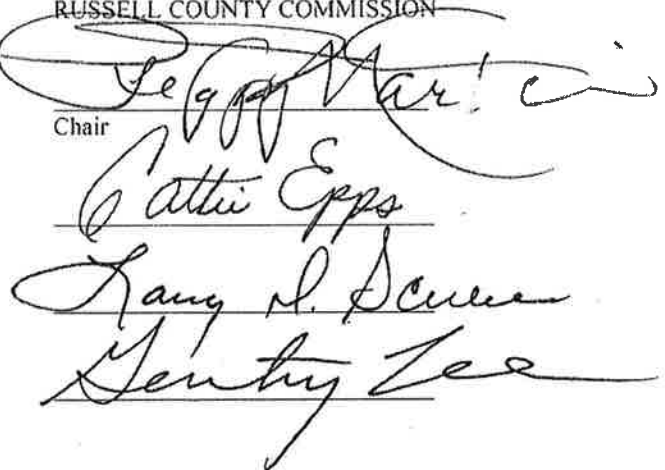 RUSSELL COUNTY COMMISSION
Peggy Martin
Chair
Cattie Epps
Larry D. Screws
Gentry Lee